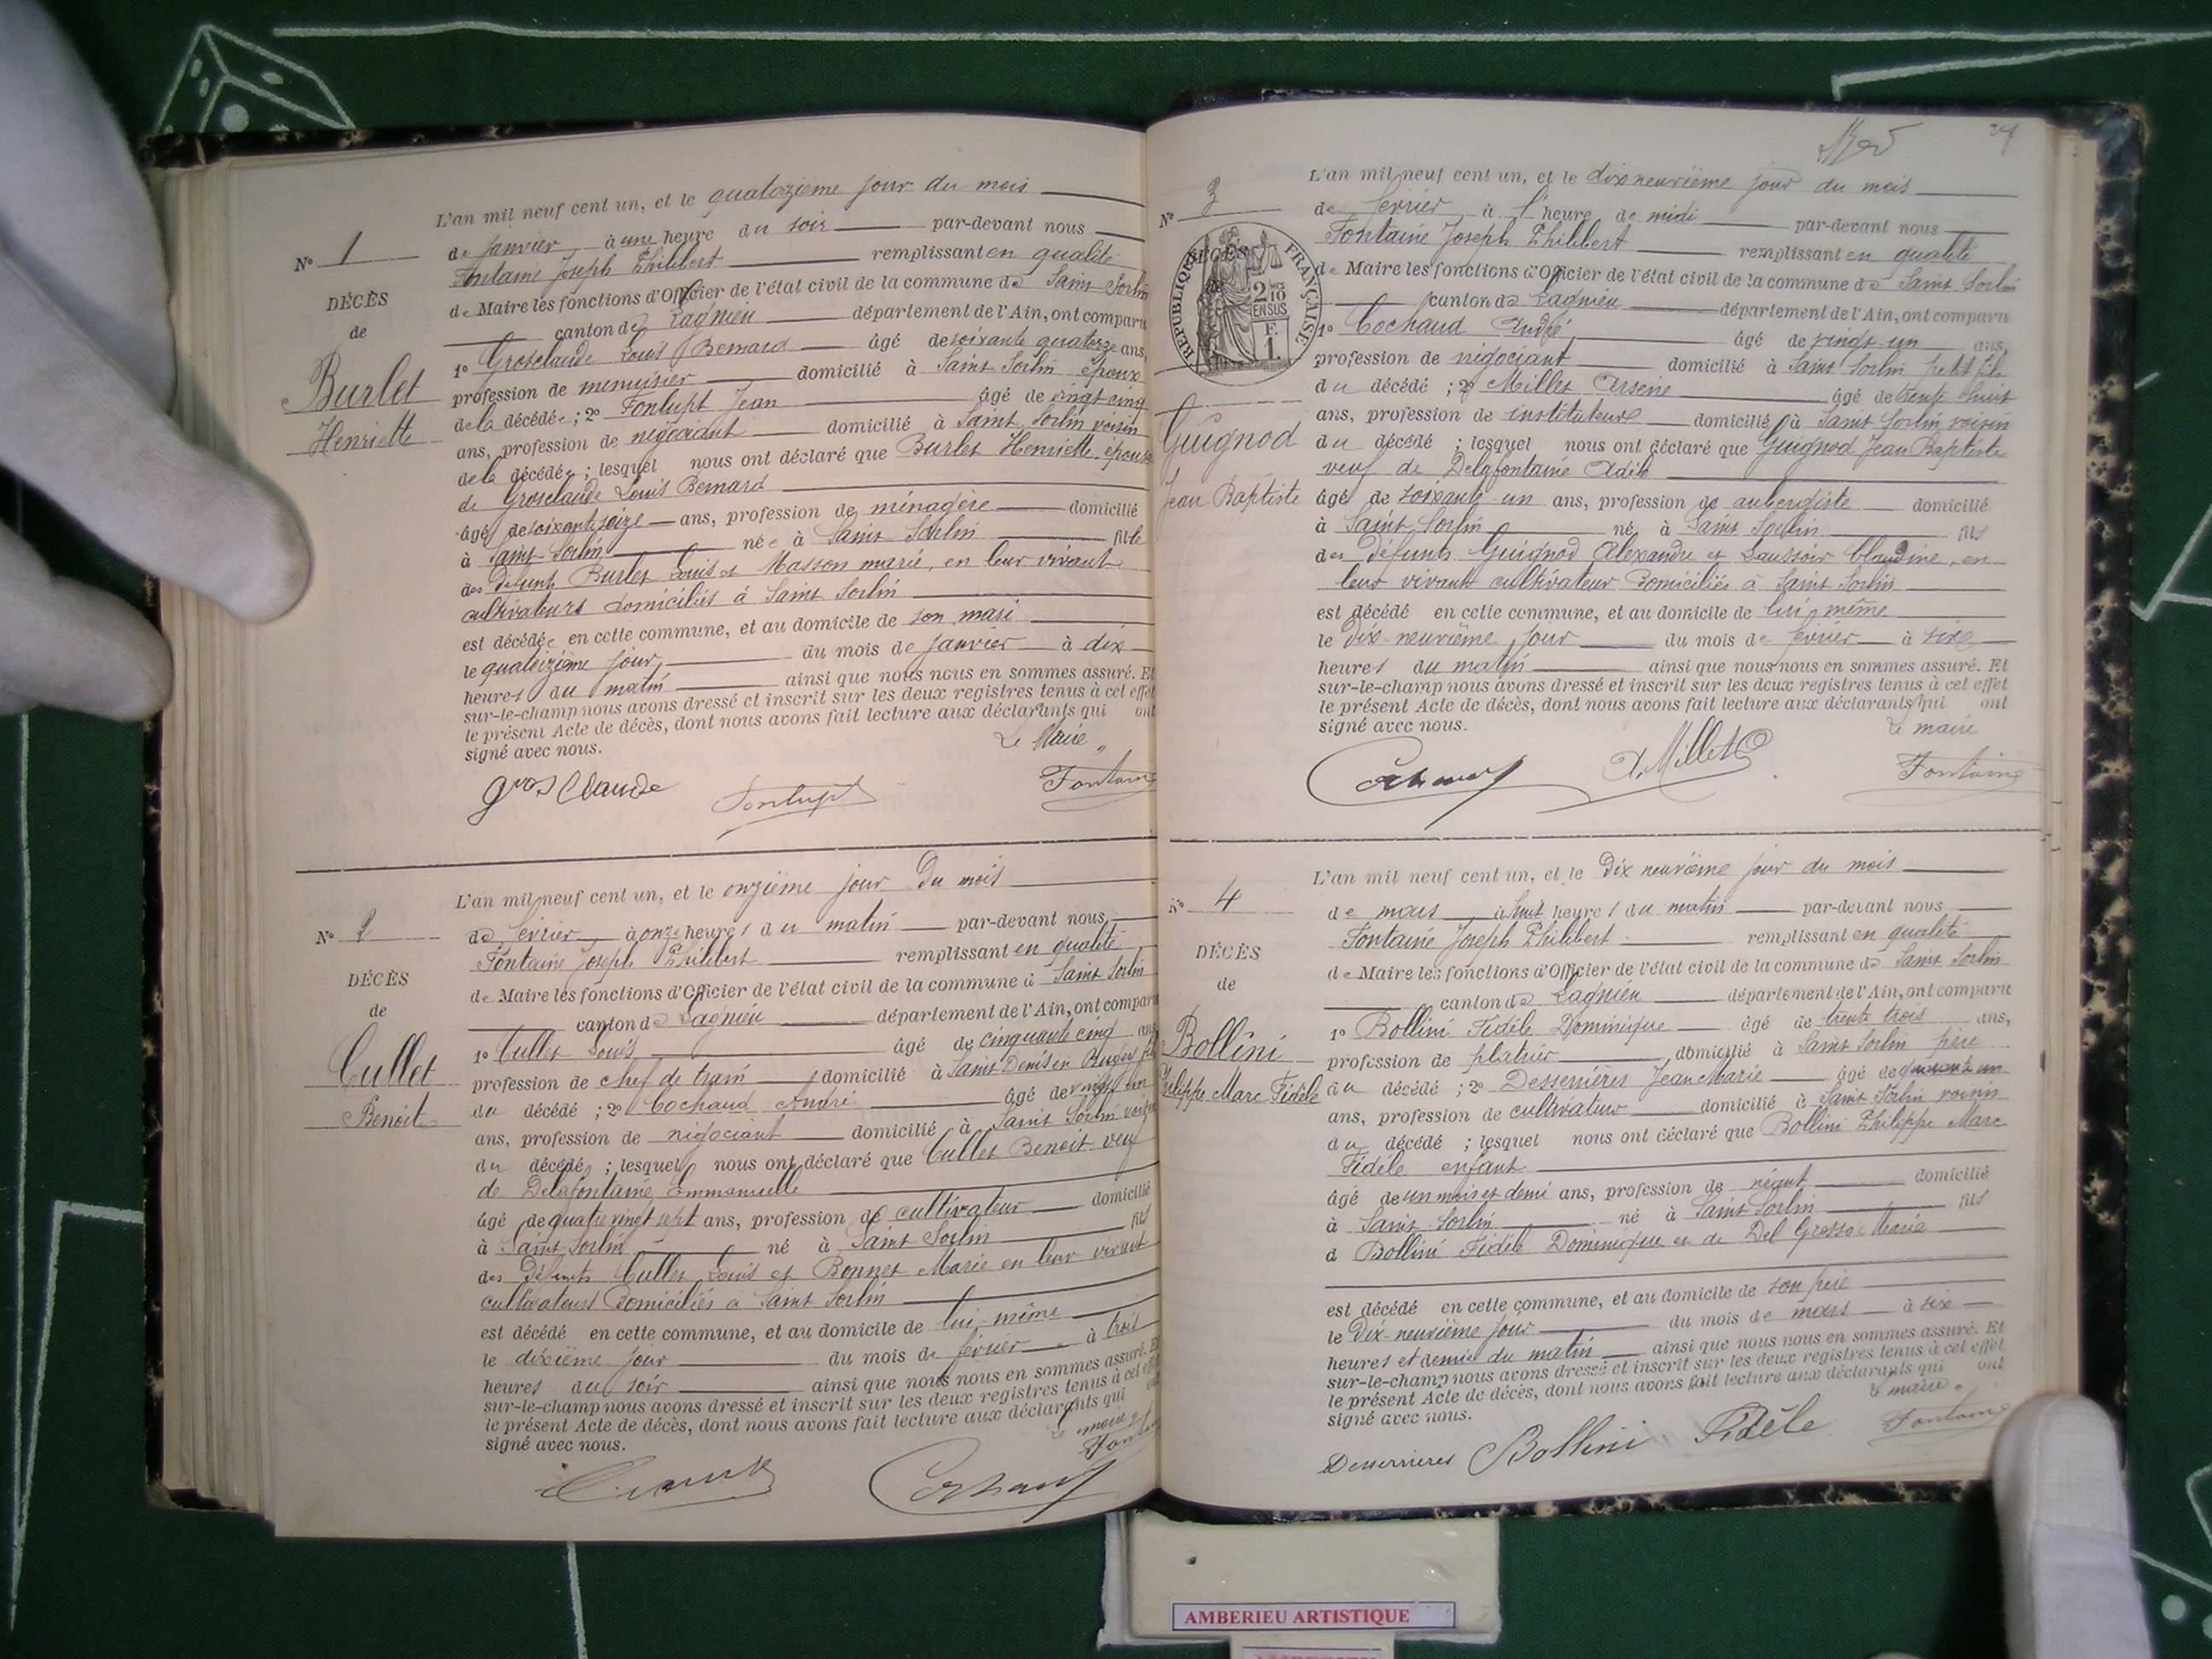 L'an mil neuf cent un, et le quatorzième jour du mois
de janvier à une heure du soir par-devant nous
Nº 1
Fontaine Joseph Philibert remplissant en qualité
DÉCÈS
de Maire les fonctions d'Officier de l'état civil de la commune de Saint Sorlin
de
canton de Lagnieu département de l'Ain, ont comparu
1º Grosclaude Louis Bernard âgé de soixante quatorze ans,
Burlet
profession de menuisier domicilié à Saint Sorlin époux
Henriette
de la décédée ; 2º Fontupt Jean âgé de vingt cinq
ans, profession de négociant domicilié à Saint Sorlin voisin
de la décédée ; lesquel nous ont déclaré que Burlet Henriette, épouse
de Grosclaude Louis Bernard
âgée de soixante seize ans, profession de ménagère domicilié
à Saint Sorlin née à Saint Sorlin fille
des défunts Burlet Louis et Masson marie, en leur vivant
cultivateurs domiciliés à Saint Sorlin
est décédée en cette commune, et au domicile de son mari
le quatorzième jour du mois de janvier à dix
heures du matin ainsi que nous nous en sommes assuré. Et
sur-le-champ nous avons dressé et inscrit sur les deux registres tenus à cet effet
le présent Acte de décès, dont nous avons fait lecture aux déclarants qui ont
signé avec nous.
Le Maire
grosClaude Fontupt Fontaine
L'an mil neuf cent un, et le onzième jour du mois
Nº 2
de février à onze heures du matin par-devant nous
Fontaine Joseph Philibert remplissant en qualité
DÉCÈS
de Maire les fonctions d'Officier de l'état civil de la commune d Saint Sorlin
de
canton de Lagnieu département de l'Ain, ont comparu
1º Cullet Louis âgé de cinquante cinq ans
Cullet
profession de chef de train domicilié à Saint Denis en Bugey fils
Benoit
du décédé ; 2º Cochaud André âgé de vingt un
ans, profession de négociant domicilié à Saint Sorlin voisin
du décédé ; lesquel nous ont déclaré que Cullet Benoit veuf
de Delafontaine Emmanuelle
âgé de quatre vingt sept ans, profession de cultivateur domicilié
à Saint Sorlin né à Saint Sorlin fils
des défunts Cullet Louis et Bonnet Marie en leur vivant
cultivateurs domiciliés à Saint Sorlin
est décédé en cette commune, et au domicile de lui-même
le dixième jour du mois de février à trois
heures du soir ainsi que nous nous en sommes assuré. Et
sur-le-champ nous avons dressé et inscrit sur les deux registres tenus à cet effet
le présent Acte de décès, dont nous avons fait lecture aux déclarants qui
signé avec nous.
Le maire
Fontaine
Cochaud
27
L'an mil neuf cent un, et le dix neuvième jour du mois
Nº 3
de février à l'heure de midi par-devant nous
Fontaine Joseph Philibert remplissant en qualité
DÉCÈS
RÉPUBLIQUE FRANÇAISE
2 MES 10 EN SUS
F. 1.
de Maire les fonctions d'Officier de l'état civil de la commune de Saint Sorlin
canton de Lagnieu département de l'Ain, ont comparu
1º Cochaud André âgé de vingt-un ans,
profession de négociant domicilié à Saint Sorlin petit fils
du décédé ; 2º Millet Arsène âgé de trente huit
Guignod
ans, profession de instituteur domicilié à Saint Sorlin voisin
du décédé ; lesquel nous ont déclaré que Guignod Jean Baptiste
veuf de Delafontaine Adèle
Jean Baptiste
âgé de soixante-un ans, profession de aubergiste domicilié
à Saint Sorlin né à Saint Sorlin fils
des défunts Guignod Alexandre et Claudine, en
leur vivant cultivateur domiciliés à Saint Sorlin
est décédé en cette commune, et au domicile de lui-même
le dix-neuvième jour du mois de février à six
heures du matin ainsi que nous nous en sommes assuré. Et
sur-le-champ nous avons dressé et inscrit sur les deux registres tenus à cet effet
le présent Acte de décès, dont nous avons fait lecture aux déclarants qui ont
signé avec nous.
Le maire
Cochaud A. Millet Fontaine
L'an mil neuf cent un, et le dix neuvième jour du mois
Nº 4
de mars à huit heures du matin par-devant nous
Fontaine Joseph Philibert remplissant en qualité
DÉCÈS
de Maire les fonctions d'Officier de l'état civil de la commune de Saint Sorlin
de
canton de Lagnieu département de l'Ain, ont comparu
1º Bollini Fidèle Dominique âgé de trente trois ans,
Bollini
profession de platrier domicilié à Saint Sorlin père
Philippe Marc Fidèle
du décédé ; 2º Desserrières Jean Marie âgé de quarante un
ans, profession de cultivateur domicilié à Saint Sorlin voisin
du décédé ; lesquel nous ont déclaré que Bollini Philippe Marc
Fidèle enfant
âgé de un mois et demi ans, profession de néant domicilié
à Saint Sorlin né à Saint Sorlin fils
d Bollini Fidèle Dominique et de Del Grosso Marie
est décédé en cette commune, et au domicile de son père
le dix-neuvième jour du mois de mars à six
heures et demie du matin ainsi que nous nous en sommes assuré. Et
sur-le-champ nous avons dressé et inscrit sur les deux registres tenus à cet effet
le présent Acte de décès, dont nous avons fait lecture aux déclarants qui ont
signé avec nous.
Le maire
Desserrières Bollini Fidèle Fontaine
AMBERIEU ARTISTIQUE